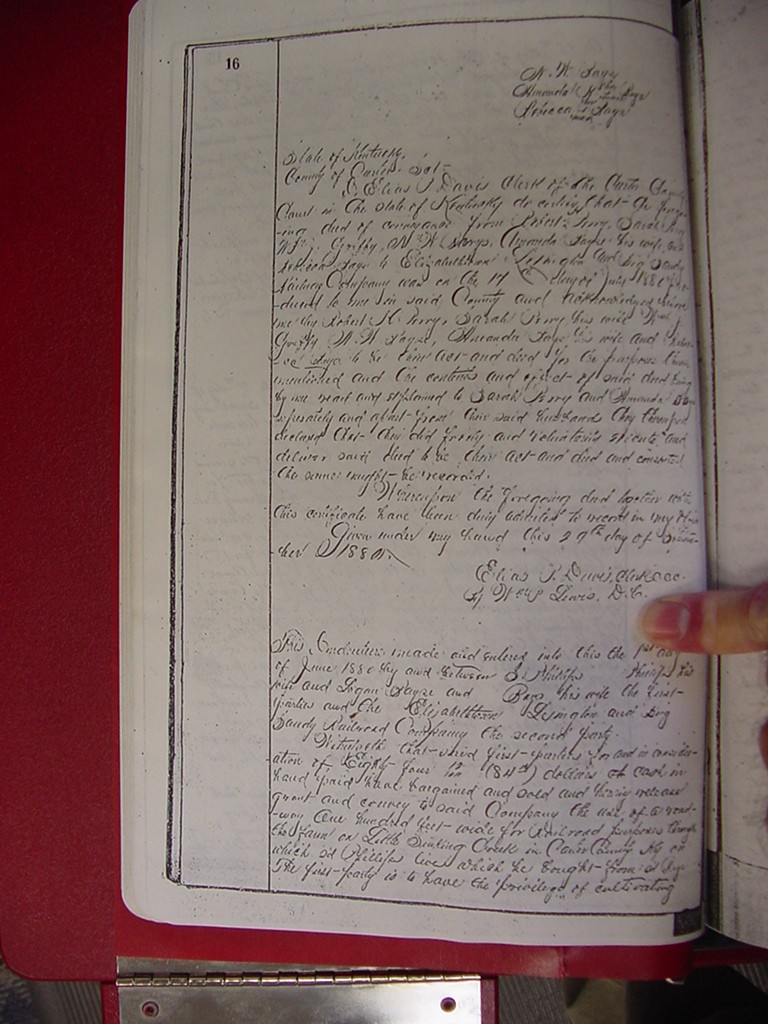 16
N. W. Sayr
Amanda X her Sayr
Rebecca Sayr
mark
State of Kentucky,
County of Carter Sct-
I, Elias P Davis Clerk of the Carter County
Court in the state of Kentucky do certify that the forego-
ing deed of conveyance from Robert Perry, Sarah Perry
Grizby, N. W. Amanda Sayr his wife and
Rebecca Sayr to Elizabethtown Lexington and Big Sandy
Railway Company was on the 17 day of July 1880 pro-
duced to me in said County and acknowledged before
me by Robert H Perry, Sarah Perry his wife
Grizby N. W. Sayr, Amanda Sayr his wife and Rebec-
ca Sayr to be their act and deed for the purposes therein
mentioned and the contents and effect of said deed being
by me read and explained to Sarah Perry and Amanda Sayr
separately and apart from their said husbands they thereupon
declared that they did freely and voluntarily execute and
deliver said deed to be their act and deed and consented
the same might be recorded.
Whereupon the foregoing deed together with
this certificate have been duly admitted to record in my office
Given under my hand this 29th day of
-ber 1880.
Elias P. Davis, Clerk CCC.
By Lewis, D.C.
This Indenture made and entered into this the 1st day
of June 1880 by and between S. Philips Philips his
wife and Logan and his wife the first
parties and the Elizabethtown Lexington and Big
Sandy Railroad Company the second party.
Witnesseth that said first parties for and in consider-
ation of Eighty four dollars cash in
hand paid have bargained and sold and hereby release
grant and convey to said Company the use of a road-
way One hundred feet wide for Railroad purposes through
the farm on Little Sinking Creek in Carter County Ky on
which sd Philips live which he bought from
The first party is to have the privilege of cultivating